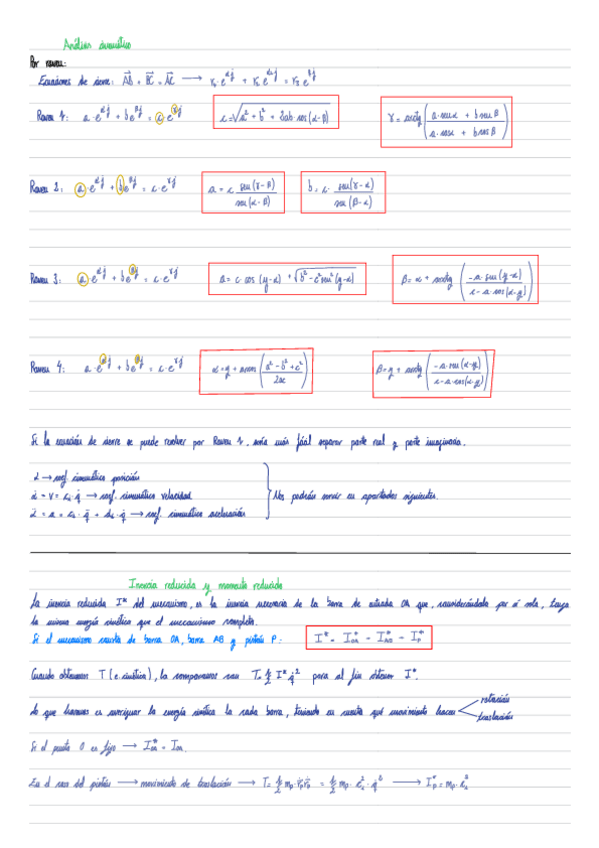 Análisis cinemático
Por raven:
Ecuaciones de cierre: AB + BC = AC → r₁·e^αj + r₂ e^αj = r₃ e^αj
Raven 1: a·e^αj + b e^βj = c·e^γj   c = √(a² + b² + 2ab·cos(α-β))   γ = arctg((a·senα + b senβ)/(a·cosα + b cosβ))
Raven 2: a·e^αj + b e^βj = c·e^γj   a = c · sen(γ-β)/sen(α-β)   b = c · sen(γ-α)/sen(β-α)
Raven 3: a·e^αj + b e^βj = c·e^γj   a = c·cos(y-α) + √(b² - c² sen²(y-α))   β = α + arctg((-a·sen(y-α))/(c-a·cos(α-y)))
Raven 4: a·e^αj + b e^βj = c·e^γj   α = y + arcos((a² - b² + c²)/2ac)   β = y + arctg((-a·sen(α-y))/(c-a·cos(α-y)))
Si la ecuación de cierre se puede resolver por Raven 1, sería más fácil separar parte real y parte imaginaria.
→ coef. cinemático posición
= v = · q̇ → coef. cinemático velocidad
= a = · q̈ + · q̇ → coef. cinemático aceleración
Nos podrán servir en apartados siguientes.
Inercia reducida y momento reducido
La inercia reducida I* del mecanismo, es la inercia necesaria de la barra de entrada OA que, considerándola por sí sola, tenga
la misma energía cinética que el mecanismo completo.
Si el mecanismo consta de barra OA, barra AB y pistón P: I* = I*OA - I*AB - I*P
Cuando obtenemos T (e. cinética), la comparamos con T = ½ I* q̇² para al fin obtener I*.
Lo que hacemos es averiguar la energía cinética de cada barra, teniendo en cuenta qué movimiento hacen
rotación
traslación
Si el punto O es fijo → I*OA = IOA.
En el caso del pistón → movimiento de traslación → T = ½ mp · ṙp ṙp = ½ mp · · q̇² → I*p = mp ·